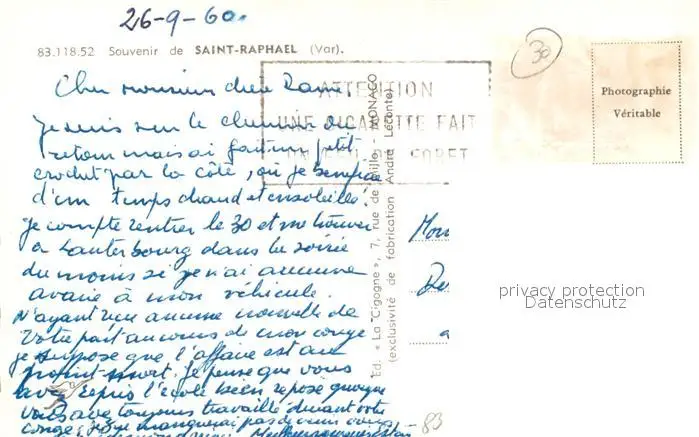 26-9-60.
83.118.52 Souvenir de SAINT-RAPHAEL (Var).
30
Photographie
Véritable
ATTENTION
UNE CIGARETTE FAIT
FORET
Cher monsieur
Je suis sur le chemin du
retour mais ai fait un petit
crochet par la côte, où je bénéficie
d'un temps chaud et ensoleillé.
Je compte rentrer le 30 et me trouver
à Lauterbourg dans la soirée
du moins si je n'ai aucune
avarie à mon véhicule.
N'ayant reçu aucune nouvelle de
votre part au cours de mon congé
je suppose que l'affaire est au
point-mort. Je pense que vous
avez repris l'école bien reposé quoique
vous avez toujours travaillé durant votre
congé. Je ne manquerai pas de
Ed. « La Cigogne », 7, rue de Millo - MONACO
(exclusivité de fabrication André Leconte)
Mon
De
a
83
privacy protection
Datenschutz